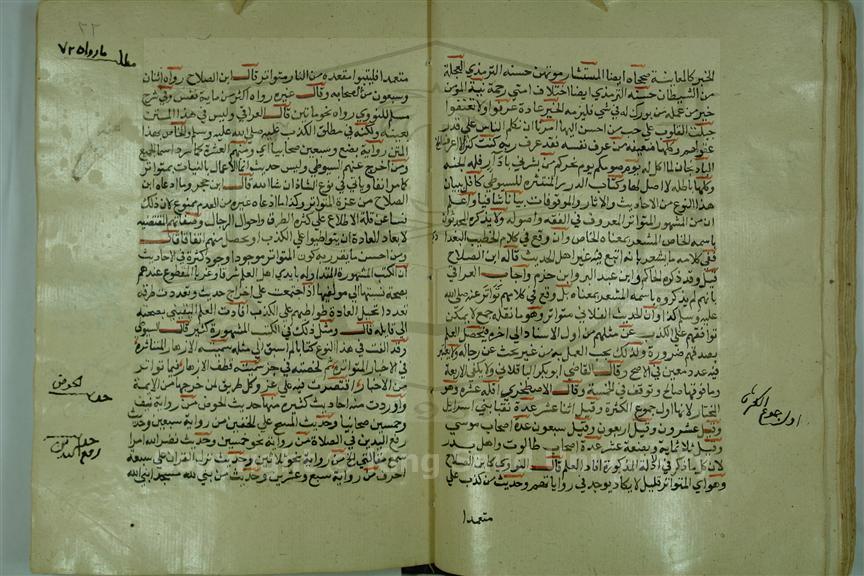 الخبر كالمعاينة صححاه ايضا المستشار مؤتمن حسنه الترمذي العجلة
من الشيطان حسنه الترمذي ايضا اختلاف امتي رحمة نية المؤمن
خير من عمله من بورك له في شي فليزمه الخير عادة عرفوا ولا تعنفوا
جبلت القلوب على حب من احسن اليها امرنا ان نكلم الناس على قدر
عقولهم من عرف نفسه فقد عرف ربه كنت كنزا لا اعرف
الباذنجان لما اكل له يوم صومكم يوم نحركم من بشرني باذار فله الجنة
وكلها باطلة لا اصل لها وكتاب الدرر المنتثرة للسيوطي كافل ببيان
هذا النوع من الاحاديث والاثار والموقوفات بيانا شافيا واعلم
ان من المشهور المتواتر المعروف في الفقه واصوله ولا يذكره المحدثون
باسمه الخاص المشعر بمعناه الخاص وان وقع في كلام الخطيب البغدا
ففي كلامه ما يشعر بانه اتبع فيه غير اهل الحديث قاله ابن الصلاح
قيل وقد ذكره الحاكم وابن عبد البر وابن حزم واجاب العراقي
بانهم لم يذكروه باسمه المشعر بمعناه بل وقع في كلامهم تواتر عنه صلى الله
عليه وسلم كذا وان الحديث الفلاني متواتر وهو ما نقله جمع لا يمكن
توافقهم على الكذب عن مثلهم من اول الاسناد الى اخره فيحصل العلم
بصدقهم ضرورة ولذلك يجب العمل به من غير بحث عن رجاله ولا يعتبر
فيه عدد معين في الاصح وقال القاضي ابو بكر الباقلاني ولا يكفي الاربعة
وما فوقها صالح وتوقف في الخمسة وقال الاصطخري اقله عشرة وهو
المختار لانها اول جموع الكثرة وقيل اثنا عشر عدة نقبا بني اسرائيل
وقيل عشرون وقيل اربعون وقيل سبعون عدة اصحاب موسى
وقيل ثلاثماية وبضعة عشر عدة اصحاب طالوت واهل بدر
لان كل ما ذكر في الادلة المذكورة افاد العلم قال النووي كابن الصلاح
وهو اي المتواتر قليل لا يكاد يوجد في رواياتهم وحديث من كذب علي
متعمدا
اول جموع الكثرة
٣٢
مطلب ما رواه ٧٢
متعمدا فليتبوا مقعده من النار متواتر قال ابن الصلاح رواه اثنان
وسبعون من الصحابه وقال غيره رواه اكثر من ماية نفس وفي شرح
مسلم للنووي رواه نحو مايتين قال العراقي وليس في هذا المتن
بعينه ولكنه في مطلق الكذب عليه صلى الله عليه وسلم والخاص بهذا
المتن رواية بضع وسبعين صحابيا اي ومنهم العشرة كما سرد اسما الجميع
ومن اخرج عنهم السيوطي وليس حديث انما الاعمال بالنيات بمتواتر
كما مر انفا وياتي في نوع الشاذ ان شا الله قال ابن حجر وما ادعاه ابن
الصلاح من عزة المتواتر وكذا ما ادعاه غيره من العدم ممنوع لان ذلك
نشا عن قلة الاطلاع على كثرة الطرق واحوال الرجال وصفاتهم المقتضية
لابعاد العادة ان يتواطوا على الكذب او يحصل منهم اتفاقا قال
ومن احسن ما يقرر به كون المتواتر موجودا وجود كثرة في الاحاديث
ان الكتب المشهورة المتداولة بايدي اهل العلم شرقا وغربا المقطوع عندهم
بصحة نسبتها الى مولفيها اذا اجتمعت على اخراج حديث وتعددت طرقه
تعددا تحيل العادة تواطؤهم على الكذب افادت العلم اليقيني بصحته
الى قايله قال ومثل ذلك في الكتب المشهورة كثير قال السيوطي
وقد الفت في هذا النوع كتابا لم اسبق الى مثله سميته الازهار المتناثرة
في الاخبار المتواترة ثم لخصته في جز سميته قطف الازهار فيما تواتر
من الاخبار اقتصرت فيه على عزو كل طريق لمن خرجها من الايمة
واوردت منه احاديث كثيرة منها حديث الحوض من رواية نيف
وخمسين صحابيا وحديث المسح على الخفين من رواية سبعين وحديث
رفع اليدين في الصلاة من رواية نحو خمسين وحديث نضر الله امرا
سمع مقالتي الخ من رواية نحو ثلاثين وحديث نزل القران على سبعة
احرف من رواية سبع وعشرين وحديث من بنى لله مسجدا بنى الله
حديث الحوض
حديث رفع اليدين